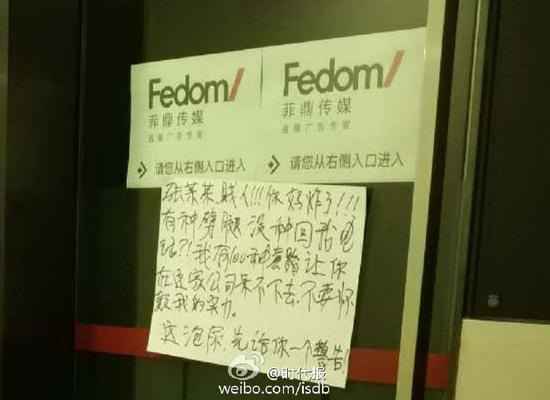 Fedom/
菲鼎传媒
请您从右侧入口进入
Fedom/
菲鼎传媒
请您从右侧入口进入
张某某贱人!!!你妈炸了!!!
有种劈腿没种回我电
话?!我有100种套路让你
在这家公司呆不下去.不要怀
疑我的实力.
这泡尿,先给你一个警告!
@时代报
weibo.com/isdb